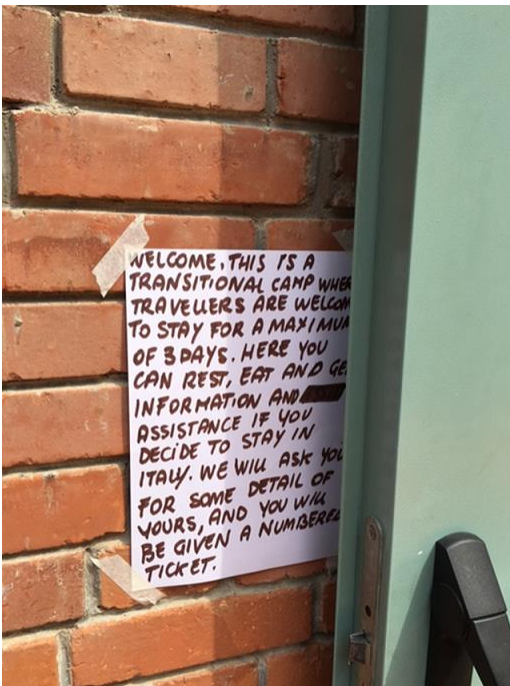 WELCOME, THIS IS A
TRANSITIONAL CAMP WHER
TRAVELLERS ARE WELCOM
TO STAY FOR A MAXIMUM
OF 3 DAYS. HERE YOU
CAN REST, EAT AND GE
INFORMATION AND
ASSISTANCE IF YOU
DECIDE TO STAY IN
ITALY. WE WILL ASK YOU
FOR SOME DETAIL OF
YOURS, AND YOU WILL
BE GIVEN A NUMBERED
TICKET.